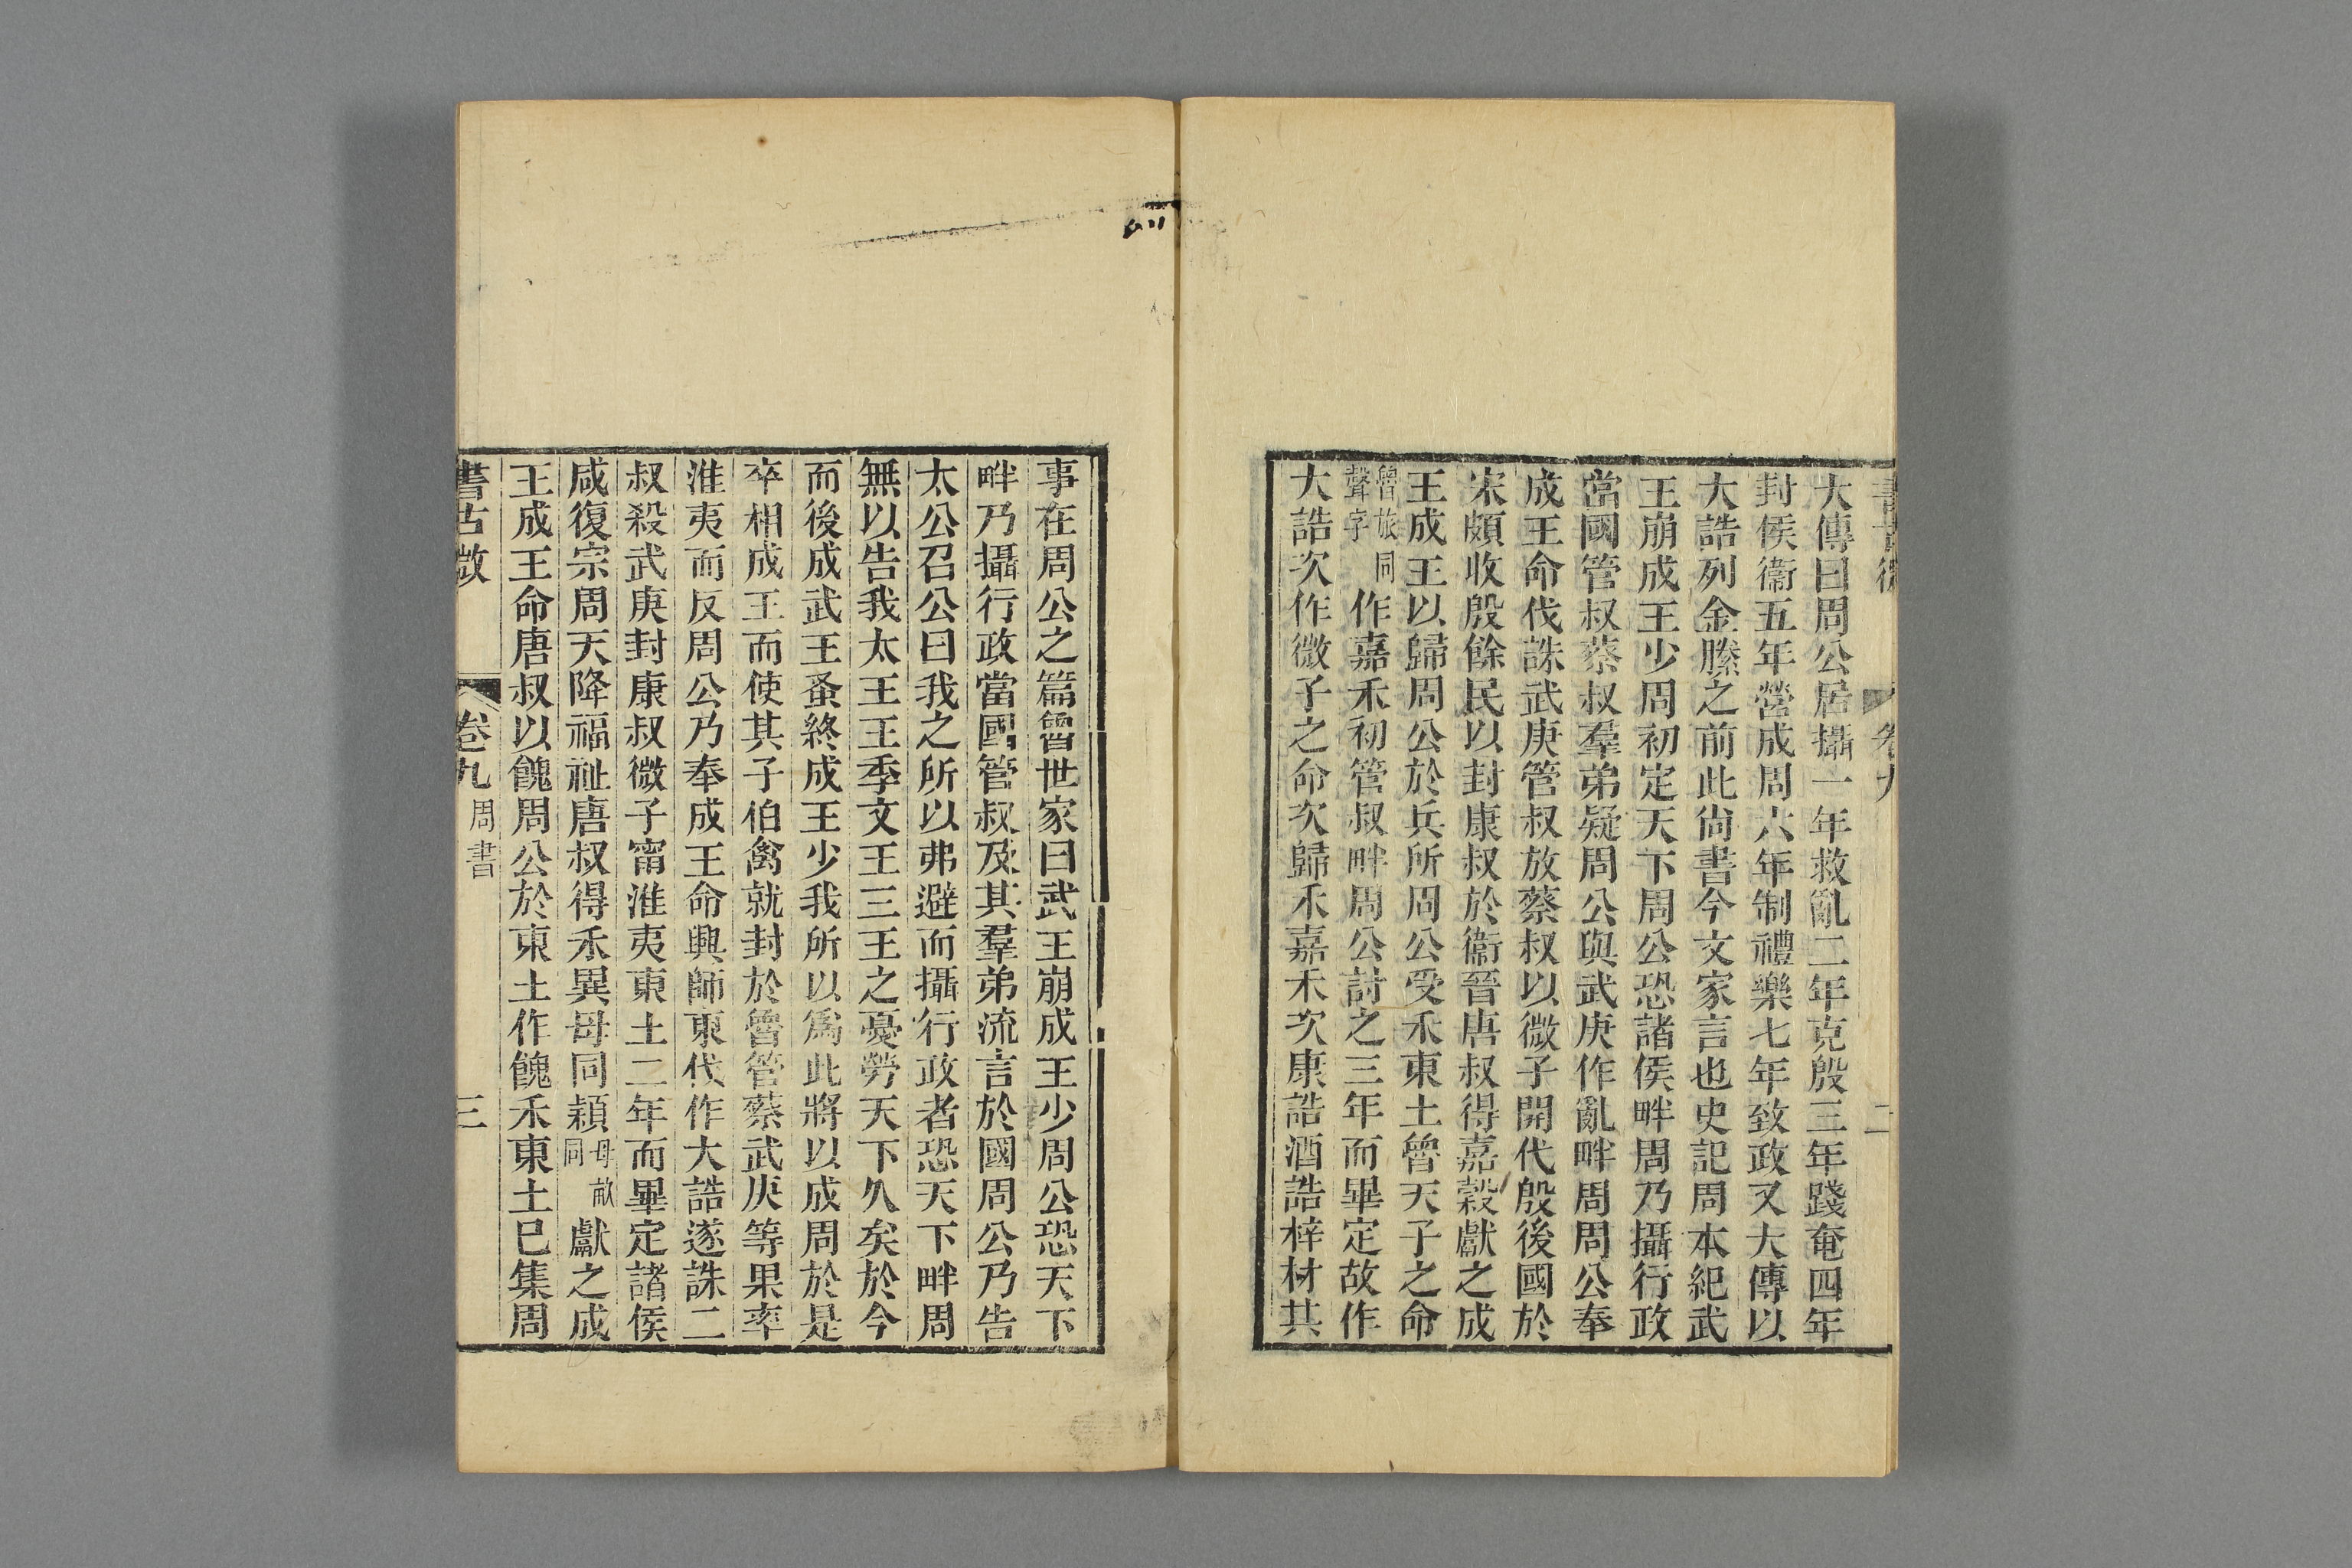 書古微
卷九
二
大傳曰周公居攝一年救亂二年克殷三年踐奄四年
封侯衞五年營成周六年制禮樂七年致政又大傳以
大誥列金縢之前此尙書今文家言也史記周本紀武
王崩成王少周初定天下周公恐諸侯畔周乃攝行政
當國管叔蔡叔羣弟疑周公與武庚作亂畔周周公奉
成王命伐誅武庚管叔放蔡叔以微子開代殷後國於
宋頗收殷餘民以封康叔於衞晉唐叔得嘉穀獻之成
王成王以歸周公於兵所周公受禾東土魯天子之命
魯旅同
聲字
作嘉禾初管叔畔周公討之三年而畢定故作
大誥次作微子之命次歸禾嘉禾次康誥酒誥梓材其
事在周公之篇魯世家曰武王崩成王少周公恐天下
畔乃攝行政當國管叔及其羣弟流言於國周公乃告
太公召公曰我之所以弗避而攝行政者恐天下畔周
無以告我太王王季文王三王之憂勞天下久矣於今
而後成武王蚤終成王少我所以爲此將以成周於是
卒相成王而使其子伯禽就封於魯管蔡武庚等果率
淮夷而反周公乃奉成王命興師東伐作大誥遂誅二
叔殺武庚封康叔微子甯淮夷東土二年而畢定諸侯
咸復宗周天降福祉唐叔得禾異母同穎
母畝
同
獻之成
王成王命唐叔以餽周公於東土作餽禾東土已集周
書古微
卷九
周書
三